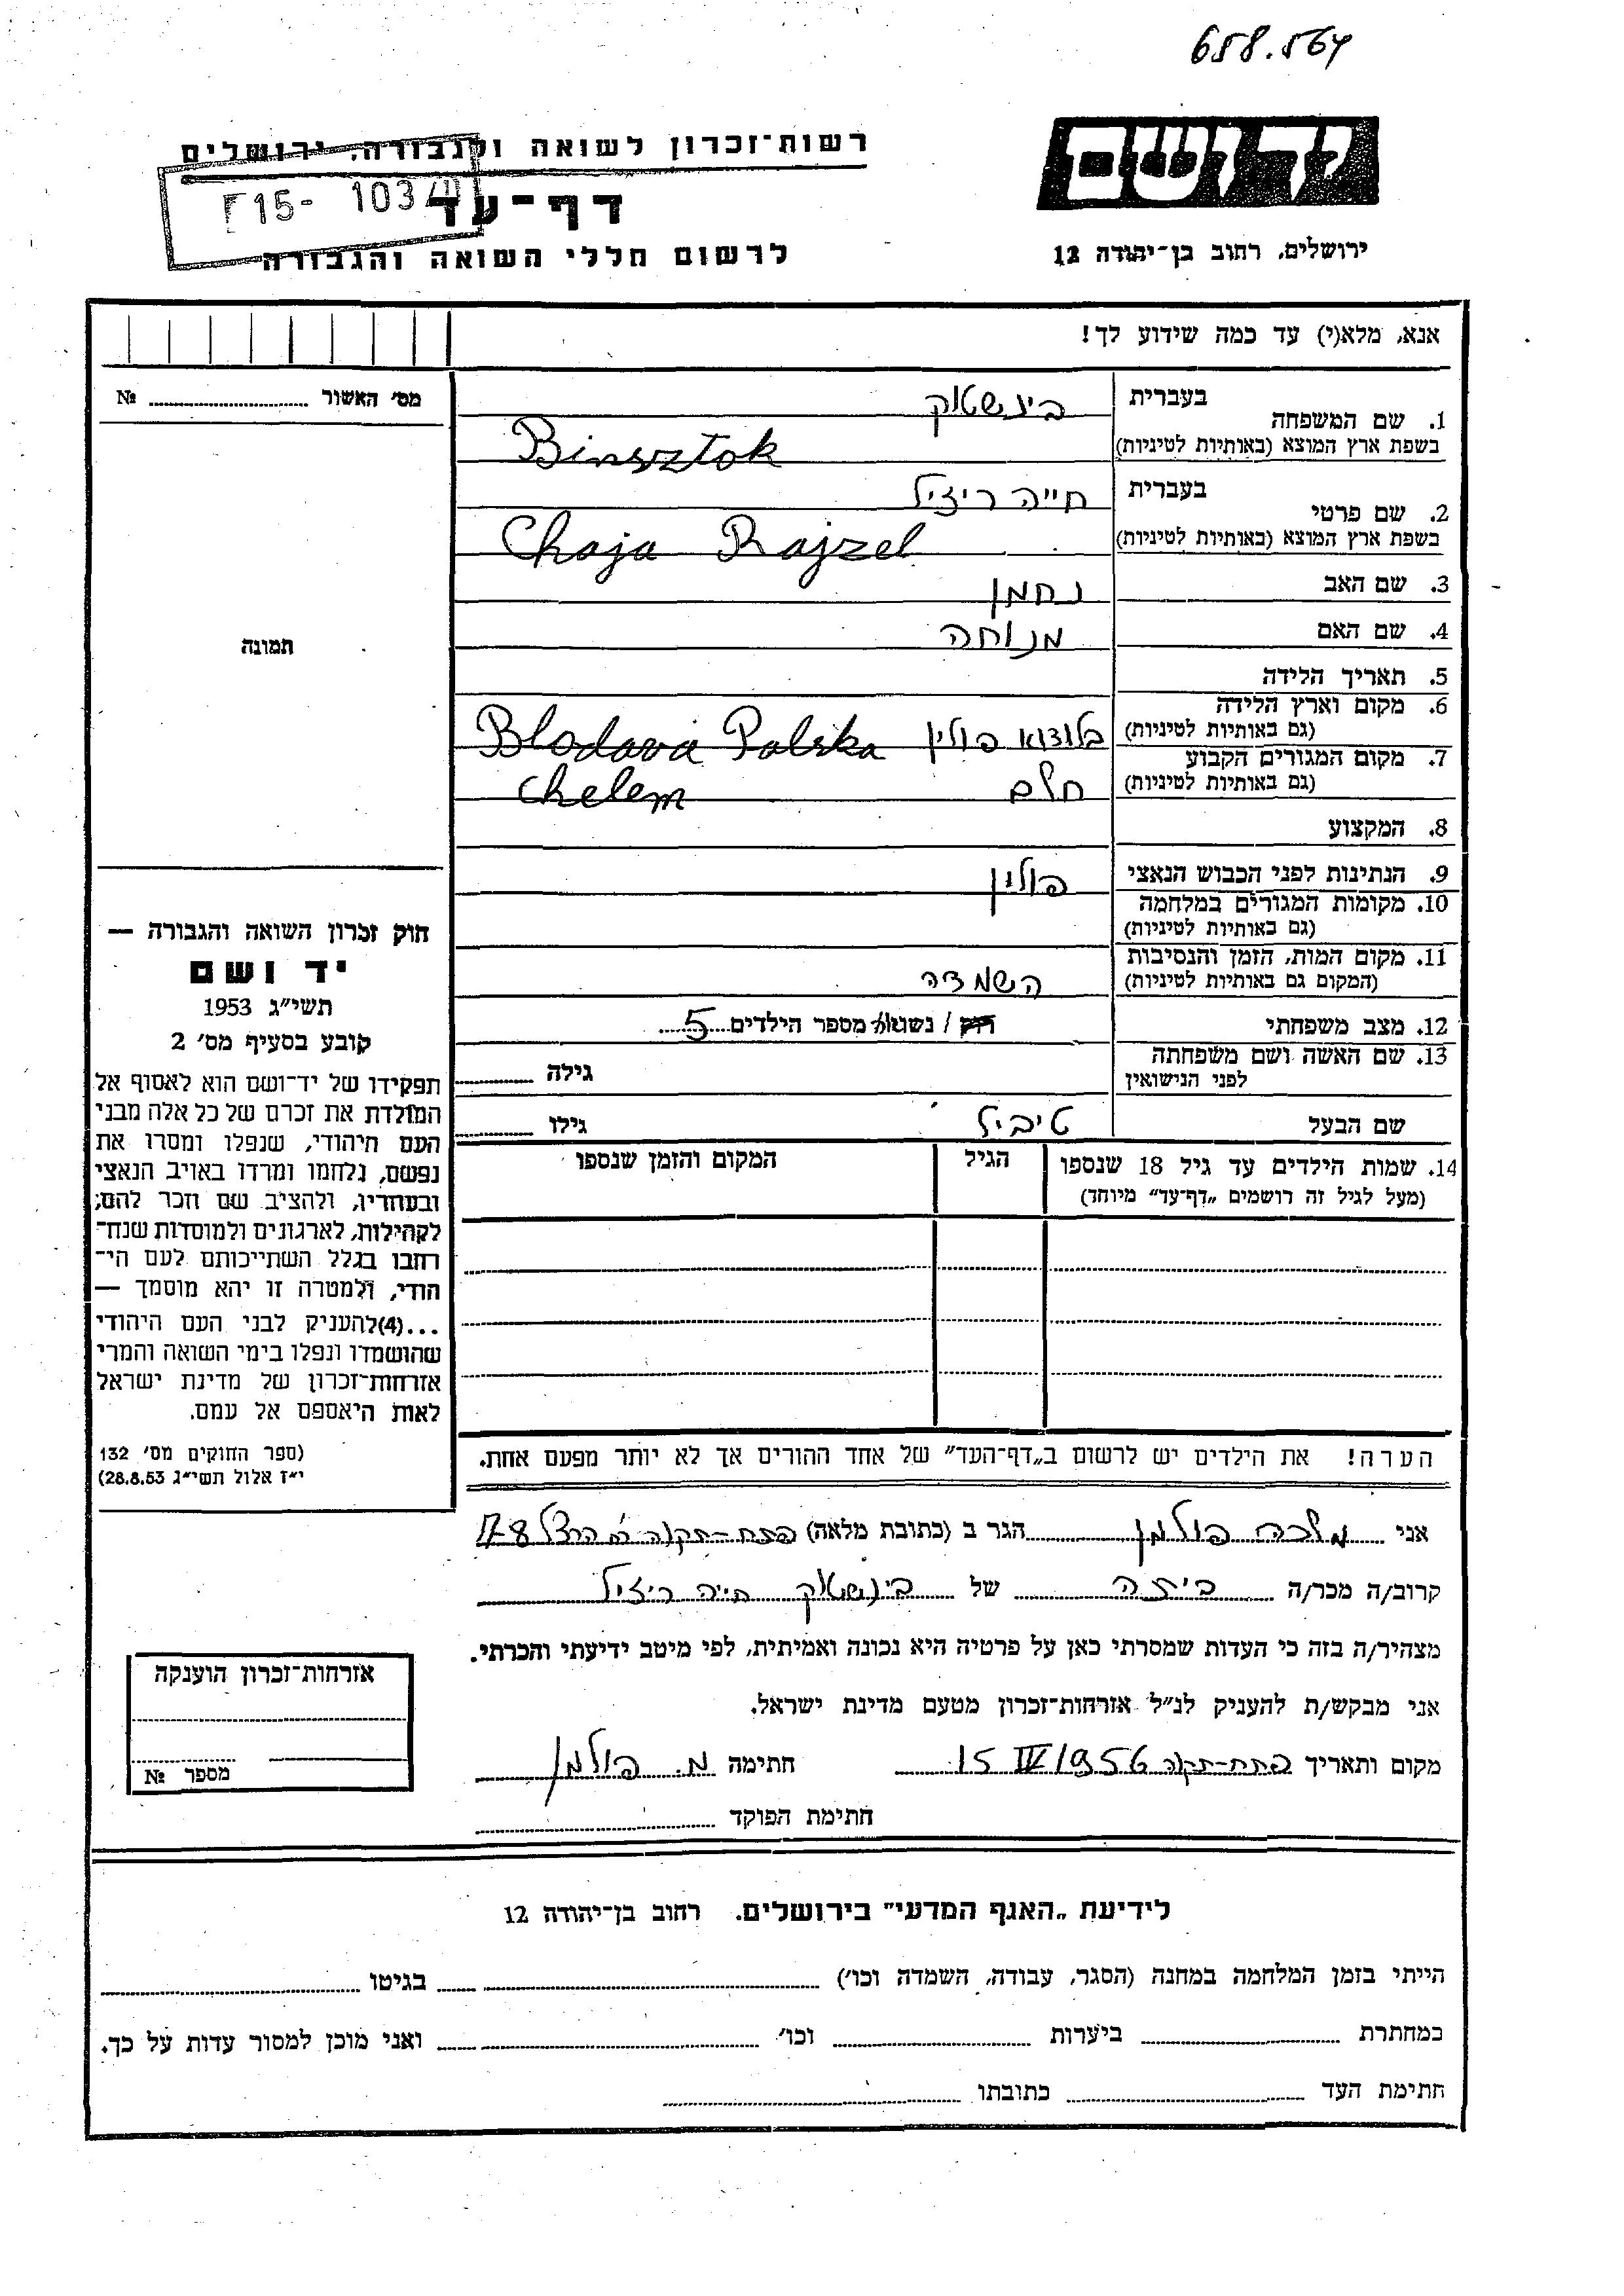 658.564
יד ושם
רשות־זכרון לשואה ולגבורה, ירושלים
דף־עד
לרשום חללי השואה והגבורה
ירושלים, רחוב בן־יהודה 12
אנא, מלא(י) עד כמה שידוע לך!
מס' האשור № 
1. שם המשפחה
בעברית בינשטוק
בשפת ארץ המוצא (באותיות לטיניות) Binsztok
2. שם פרטי
בעברית חייה ריזיל
בשפת ארץ המוצא (באותיות לטיניות) Chaja Rajzel
3. שם האב נחמן
4. שם האם מנוחה
תמונה
5. תאריך הלידה
6. מקום וארץ הלידה
(גם באותיות לטיניות) בלודוא פולין Blodava Polska
7. מקום המגורים הקבוע
(גם באותיות לטיניות) חלם Chelem
8. המקצוע
9. הנתינות לפני הכבוש הנאצי פולין
10. מקומות המגורים במלחמה
(גם באותיות לטיניות)
11. מקום המות, הזמן והנסיבות
(המקום גם באותיות לטיניות) השמדה
12. מצב משפחתי / נשוי/אה מספר הילדים 5
13. שם האשה ושם משפחתה
לפני הנישואין גילה
שם הבעל טיביל גילו
14. שמות הילדים עד גיל 18 שנספו הגיל המקום והזמן שנספו
(מעל לגיל זה רושמים „דף־עד” מיוחד)
חוק זכרון השואה והגבורה —
יד ושם
תשי״ג 1953
קובע בסעיף מס' 2
תפקידו של יד־ושם הוא לאסוף אל
המולדת את זכרם של כל אלה מבני
העם היהודי, שנפלו ומסרו את
נפשם, נלחמו ומרדו באויב הנאצי
ובעוזריו, ולהציב שם וזכר להם,
לקהילות, לארגונים ולמוסדות שנח־
רבו בגלל השתייכותם לעם הי־
הודי, ולמטרה זו יהא מוסמך —
...(4)להעניק לבני העם היהודי
שהושמדו ונפלו בימי השואה והמרי
אזרחות־זכרון של מדינת ישראל
לאות היאספם אל עמם.
(ספר החוקים מס' 132
י״ז אלול תשי״ג 28.8.53)
הערה! את הילדים יש לרשום ב„דף־העד” של אחד ההורים אך לא יותר מפעם אחת.
אני מלכה פולמן הגר ב (כתובת מלאה) פתח-תקוה הרצל 17-8
קרוב/ה מכר/ה ביתה של בינשטוק חייה ריזיל
מצהיר/ה בזה כי העדות שמסרתי כאן על פרטיה היא נכונה ואמיתית, לפי מיטב ידיעתי והכרתי.
אני מבקש/ת להעניק לנ״ל אזרחות־זכרון מטעם מדינת ישראל.
מקום ותאריך פתח-תקוה 15 IV 1956 חתימה מ. פולמן
חתימת הפוקד
אזרחות־זכרון הוענקה
מספר №
לידיעת „האגף המדעי” בירושלים. רחוב בן־יהודה 12
הייתי בזמן המלחמה במחנה (הסגר, עבודה, השמדה וכו') בגיטו
במחתרת ביערות וכו' ואני מוכן למסור עדות על כך.
חתימת העד כתובתו